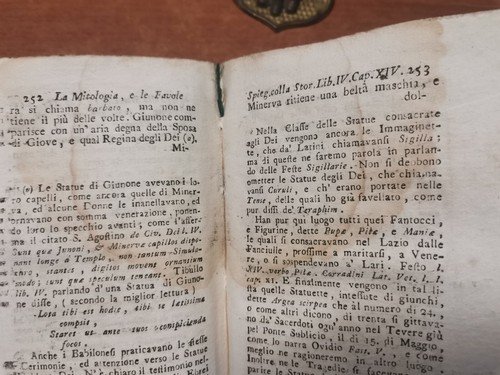 252 La Mitologia, e le Favole
ra si chiama barbato, ma non ne
tiene il più delle volte. Giunone com-
parisce con un'aria degna della Sposa
di Giove, e qual Regina degli Dei (a).
Mi-
(a) Le Statue di Giunone avevano i lo-
ro capelli, come ancora quelle di Miner-
va, ed alcune Donne le inanellavano, ed
ornavano con somma venerazione, ponen-
do loro lo specchio avanti; come l'asser-
ma il citato S. Agostino de Civ. Dei l. IV
Sunt quæ Junoni, & Minervæ capillos dispo-
nant longe a Templo, non tantum Simula-
cro stantes, digitos movent ornantium
modo; sunt quæ speculum teneant. Tibullo
lib. IV. parlando d'una Statua di Giuno-
ne disse, (secondo la miglior lettura)
Lota tibi est hodie, tibi se lætissima
compsit,
Staret ut ante tuos conspicienda
focos.
Anche i Babilonesi praticavano le stesse
Cerimonie, ed attenzione verso le Statue
N'è chiaro il testimonio nel-
Spieg. colla Stor. Lib. IV. Cap. XIV. 253
Minerva ritiene una beltà maschia, e
dol-
Nella Classe delle Statue consacrate
agli Dei vengono ancora le Immaginet-
te, che da' Latini chiamavansi Sigilla:
ma di queste ne faremo parola in parlan-
do delle Feste Sigillarie. Non si debbono
ometter le Statue degli Dei, che chiama-
vansi Curuli, e ch' erano portate nelle
Tense, delle quali ho già favellato, come
pur dissi de' Teraphim.
Han pur qui luogo tutti quei Fantocci,
e Figurine, dette Pupæ, Pilæ, e Maniæ,
le quali si consacravano nel Lazio dalle
Fanciulle, prossime a maritarsi, a Vene-
re, o si sospendevano a' Lari. Festo l.
XIV. verbo Pilæ Corradini Lat. Vet. l. I.
cap. XI. E finalmente vengono in tal
sta quelle Statuette, intessute di giunchi,
dette Argea scirpea che al numero di 24,
o come altri dicono, di trenta si gittava-
no da' Sacerdoti ogni anno nel Tevere giù
nel Ponte Sublicio, il dì 15. di Maggio,
come lo narra Ovidio Fast. V. e
ne ragioneremo in altro luogo.
Inoltre ne le Tragedie si